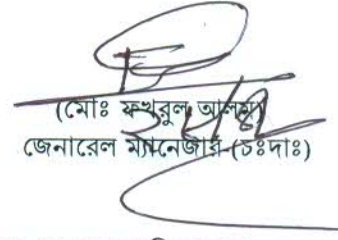 (মোঃ ফখরুল আলম)
জেনারেল ম্যানেজার (চঃদাঃ)